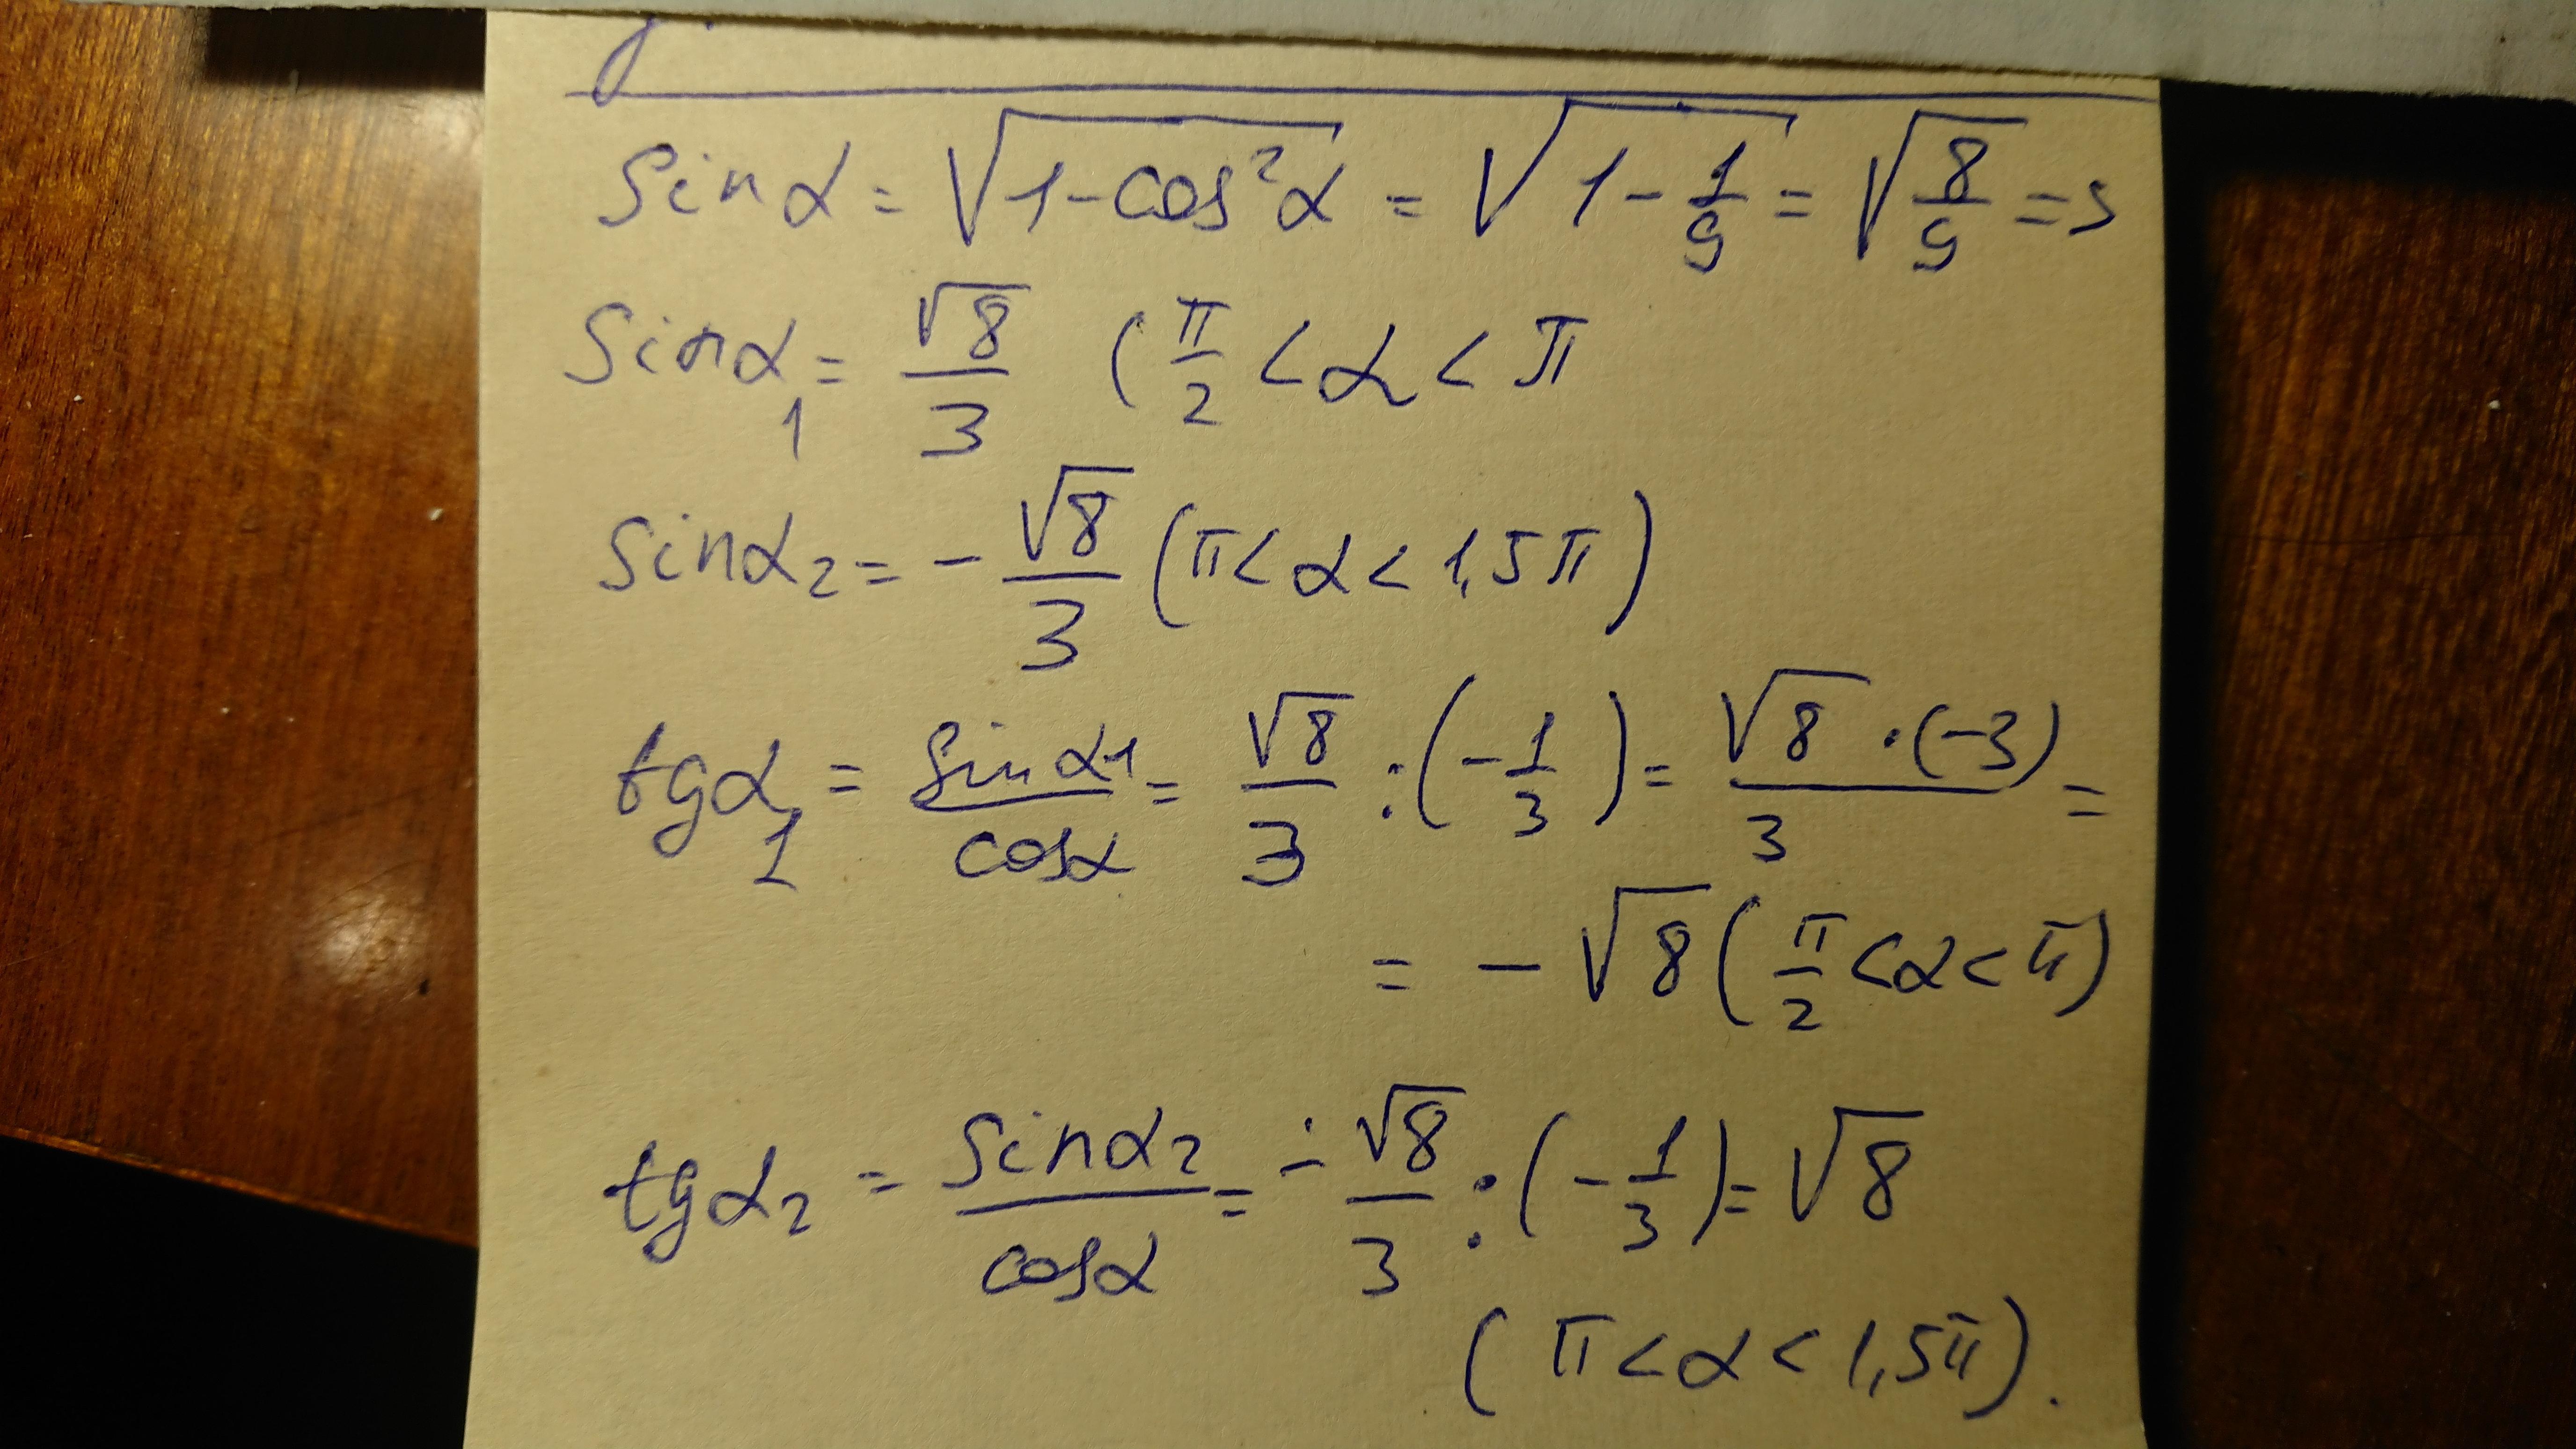 sinα = √(1-cos²α) = √(1-1/9) = √(8/9) =>
sinα₁ = √8/3 (π/2 < α < π
sinα₂ = -√8/3 (π < α < 1,5π)
tgα₁ = sinα₁/cosα = √8/3 : (-1/3) = √8·(-3)/3 =
= -√8 (π/2 < α < π)
tgα₂ = sinα₂/cosα = -√8/3 : (-1/3) = √8
(π < α < 1,5π).